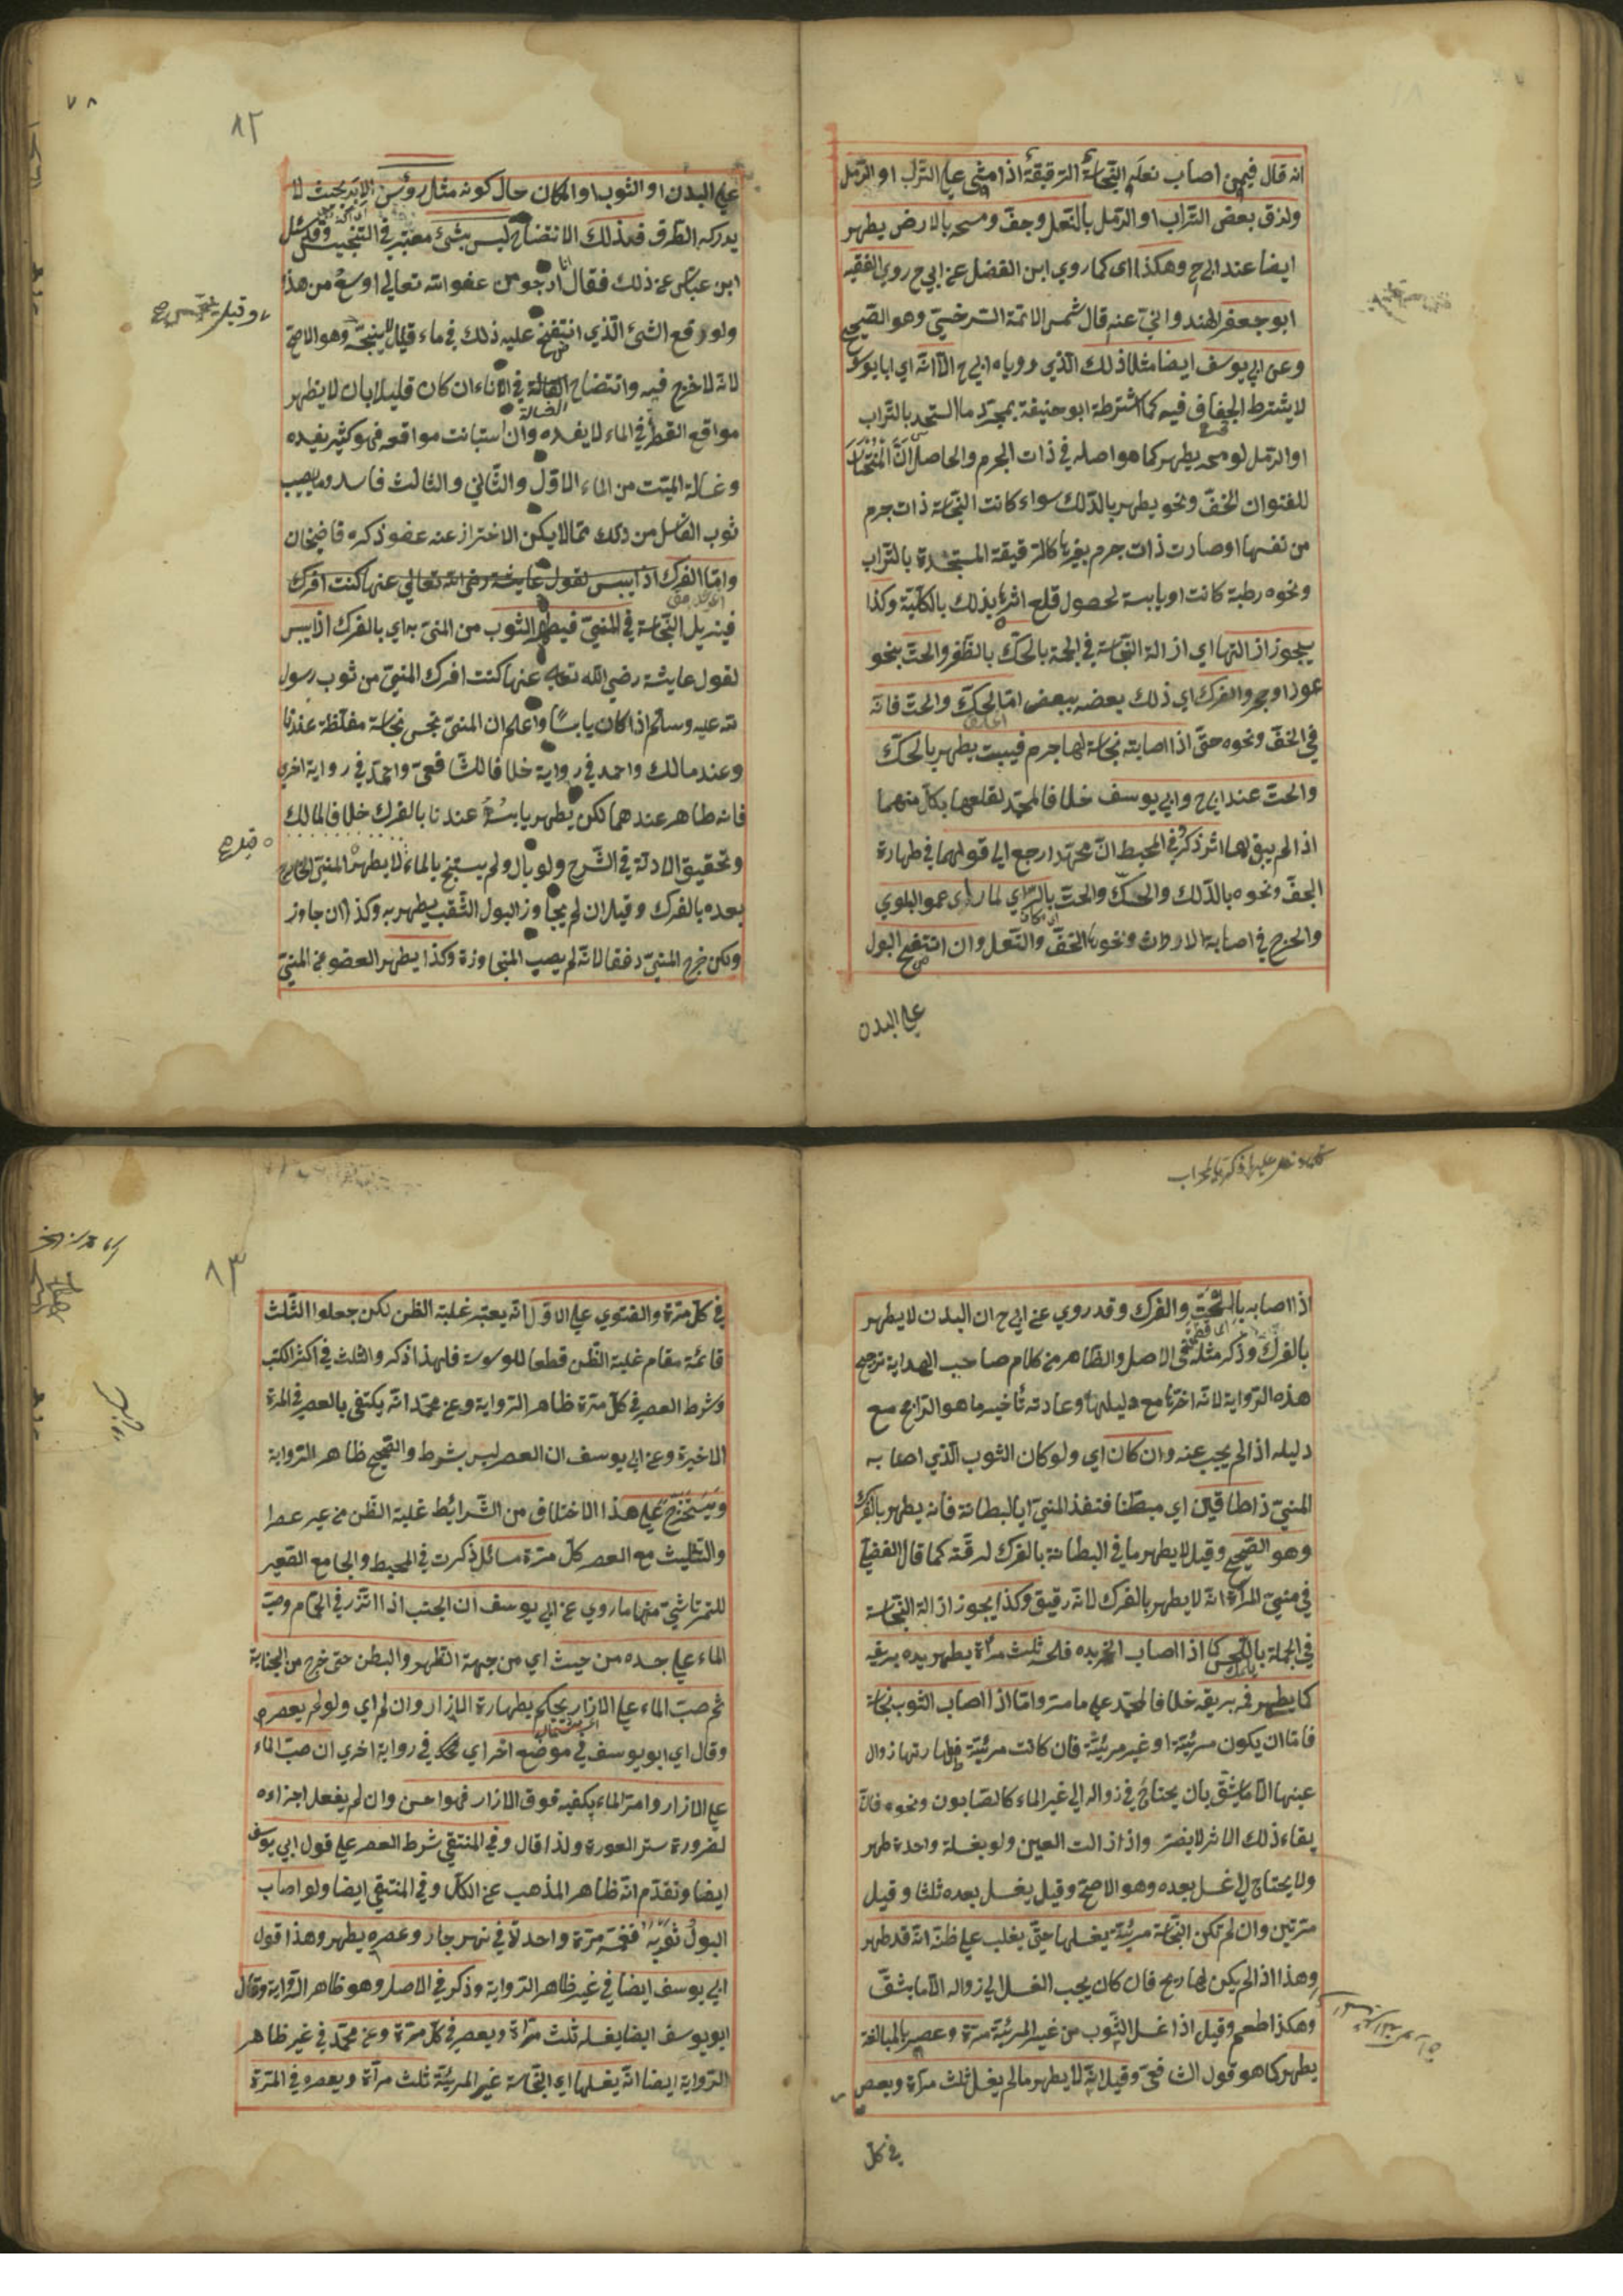 انه قال فيمن اصاب نعله النجاسة الرقيقة اذا مشى على التراب او الرمل
ولزق بعض التراب او الرمل بالنعل وجف ومسحه بالارض يطهر
ايضا عند ابي ح وهكذا اى كما روي ابن الفضل عن ابي ح روي الفقيه
ابو جعفر الهندواني عنه قال شمس الائمة السرخسي وهو الصحيح
وعن ابي يوسف ايضا مثل ذلك الذي روياه ابي ح الا انه اي ابا يوسف
لا يشترط الجفاف فيه كما اشترطه ابو حنيفة بمجرد ما استجسد بالتراب
او الرمل لو مسحه يطهر كما هو اصله في ذات الجرم والحاصل ان المختار
للفتوى ان الخف ونحوه يطهر بالدلك سواء كانت النجاسة ذات جرم
من نفسها او صارت ذات جرم بغيرها كالرقيقة المستجسدة بالتراب
ونحوه رطبة كانت او يابسة لحصول قلع اثرها بذلك بالكلية وكذا
يجوز ازالتها اي ازالة النجاسة في الجملة بالحك بالظفر والحت بنحو
عود او حجر والفرك اي ذلك بعضه ببعض اما الحك والحت فانه
في الخف ونحوه حتى اذا اصابته نجاسة لها جرم فيبست يطهر بالحك
والحت عند ابي ح وابي يوسف خلافا لمحمد لقلعها بكل منهما
اذا لم يبق لها اثر ذكر في المحيط ان محمدا رجع الى قولهما في طهارة
الخف ونحوه بالدلك والحك والحت بالري لما راى عموم البلوي
والحرج في اصابة الارواث ونحوها الخف والنعل وان انتضح البول
على البدن
٨٢
على البدن او الثوب او المكان حال كونه مثل رؤس الابر بحيث لا
يدركه الطرف فذلك الانتضاح ليس بشئ معتبر في التنجيس وقد سئل
ابن عباس عن ذلك فقال انا ارجو من عفو الله تعالى اوسع من هذا
ولو وقع الشئ الذي انتضح عليه ذلك في ماء قليل لا ينجسه وهو الاصح
وقيل ينجس صح
لانه لا حرج فيه وانتضاح الغسالة في الاناء ان كان قليلا بان لا يظهر
الغسالة
مواقع القطر في الماء لا يفسده وان استبانت مواقعه فهو كثير يفسده
وغسالة الميت من الماء الاول والثاني والثالث فاسد وما يصيب
ثوب الغاسل من ذلك مما لا يمكن الاحتراز عنه عفو ذكره قاضيخان
واما الفرك اذا يبس لقول عايشة رضى الله تعالى عنها كنت افرك
فيزيل النجاسة في المني فيطهر الثوب من المني به اي بالفرك اذا يبس
لقول عايشة رضي الله تعالى عنها كنت افرك المني من ثوب رسول
الله عليه وسلم اذا كان يابسا واعلم ان المني نجس نجاسة مغلظة عندنا
وعند مالك واحمد في رواية خلافا للشافعي واحمد في رواية اخرى
فانه طاهر عندهما لكن يطهر يابسه عندنا بالفرك خلافا لمالك
وتحقيق الادلة في الشرح ولو بال ولم يستنج بالماء لا يطهر المني الخارج
قيل صح
بعده بالفرك وقيل ان لم يجاوز البول الثقب يطهر به وكذا ان جاوز
ولكن خرج المني دفقا لانه لم يصب المجاوزة وكذا يطهر العضو من المني
اذا اصابه بالحت والفرك وقد روي عن ابي ح ان البدن لا يطهر
بالفرك وذكر مثله في الاصل والظاهر من كلام صاحب الهداية ترجيح
هذه الرواية لانه اخرها مع دليلها وعادته تأخير ما هو الراجح مع
دليله اذا لم يجب عنه وان كان اي ولو كان الثوب الذي اصابه
المني ذا طاقين اي مبطنا فنفذ المني الى البطانة فانه يطهر بالفرك
وهو الصحيح وقيل لا يطهر ما في البطانة بالفرك لرقته كما قال الفضلي
في مني المراة انه لا يطهر بالفرك لانه رقيق وكذا يجوز ازالة النجاسة
في الجملة باللحس كما اذا اصاب الخمر يده فلحسه ثلث مرات يطهر يده بريقه
كما يطهر فمه بريقه خلافا لمحمد على ما مر واما اذا اصاب الثوب نجاسة
فاما ان يكون مرئية او غير مرئية فان كانت مرئية فطهارتها زوال
عينها الا ما يشق بان يحتاج في زواله الى غير الماء كالصابون ونحوه فان
بقاء ذلك الاثر لا يضر واذا زالت العين ولو بغسلة واحدة طهر
ولا يحتاج الى غسل بعده وهو الاصح وقيل يغسل بعده ثلثا وقيل
مرتين وان لم تكن النجاسة مرئية يغسلها حتى يغلب على ظنه انه قد طهر
وهذا اذا لم يكن لها ريح فان كان يجب الغسل الى زواله الا ما يشق
وهكذا طعم وقيل اذا غسل الثوب من غير المرئية مرة وعصر بالمبالغة
يطهر كما هو قول الشافعي وقيل انه لا يطهر ما لم يغسل ثلث مرات ويعصر
في كل
٨٣
في كل مرة والفتوي على الاول انه يعتبر غلبة الظن لكن جعلوا الثلث
قائمة مقام غلبة الظن قطعا للوسوسة فلهذا ذكر والثلث في اكثر الكتب
وشرط العصر في كل مرة ظاهر الرواية وعن محمد انه يكتفى بالعصر في المرة
الاخيرة وعن ابي يوسف ان العصر ليس بشرط والصحيح ظاهر الرواية
ويستخرج على هذا الاختلاف من الشرائط غلبة الظن من غير عصر
والتثليث مع العصر كل مرة مسائل ذكرت في المحيط والجامع الصغير
للتمرتاشي منها ما روي عن ابي يوسف ان الجنب اذا اتزر في الحمام وصب
الماء على جسده من حيث اي من جهة الظهر والبطن حتى خرج من الجنابة
ثم صب الماء على الازار يحكم بطهارة الازار وان لم اي ولو لم يعصره
وقال اي ابو يوسف في موضع اخر اي في رواية اخري ان صب الماء
على الازار وامر الماء بكفيه فوق الازار فهو احسن وان لم يفعل اجزاءه
لضرورة ستر العورة ولذا قال وفي المنتقى شرط العصر على قول ابي يوسف
ايضا وتقدم انه ظاهر المذهب عن الكل وفي المنتقى ايضا ولو اصاب
البول ثوبه فغمسه مرة واحدة في نهر جار وعصره يطهر وهذا قول
ابي يوسف ايضا في غير ظاهر الرواية وذكر في الاصل وهو ظاهر الرواية وقال
ابو يوسف ايضا يغسله ثلث مرات ويعصر في كل مرة وعن محمد في غير ظاهر
الرواية ايضا انه يغسلها اي النجاسة غير المرئية ثلث مرات ويعصره في المرة